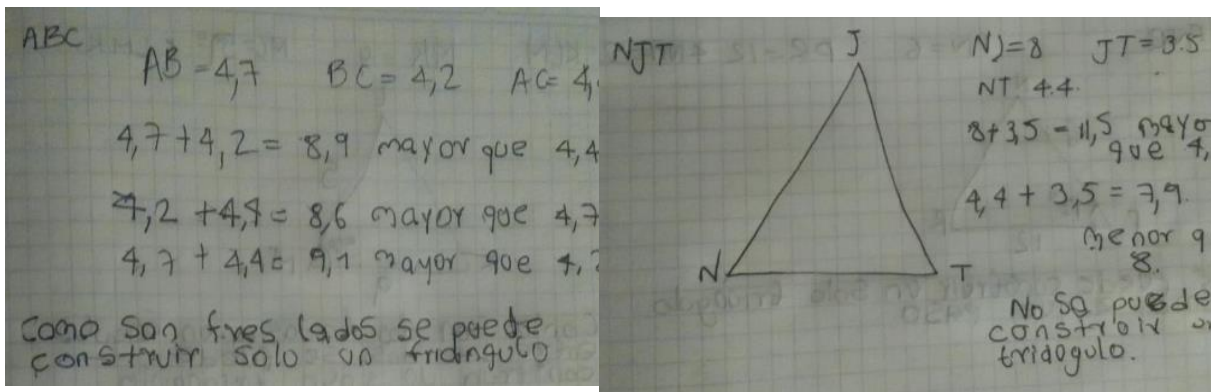 ABC
AB = 4,7 BC = 4,2 AC = 4,
4,7 + 4,2 = 8,9 mayor que 4,4
4,2 + 4,4 = 8,6 mayor que 4,7
4,7 + 4,4 = 9,1 mayor que 4,2
como son tres lados se puede
construir solo un triángulo
NJT
J
N
T
NJ = 8 JT = 3.5
NT 4.4.
8 + 3,5 = 11,5 mayo
que 4,
4,4 + 3,5 = 7,9.
menor q
8.
No se puede
construir un
triáogulo.